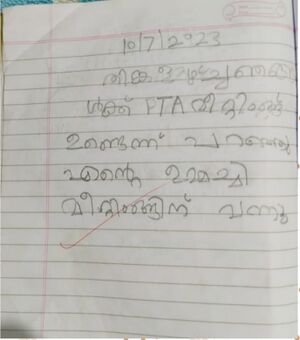 10/7/2023
തിങ്കളാഴ്ച്ച ഞങ്ങ
ൾക്ക് PTA മീറ്റിങ്ങ്
ഉണ്ടെന്ന് പറഞ്ഞു
എന്റെ ഉമ്മച്ചി
മീറ്റിങ്ങിന് വന്നു